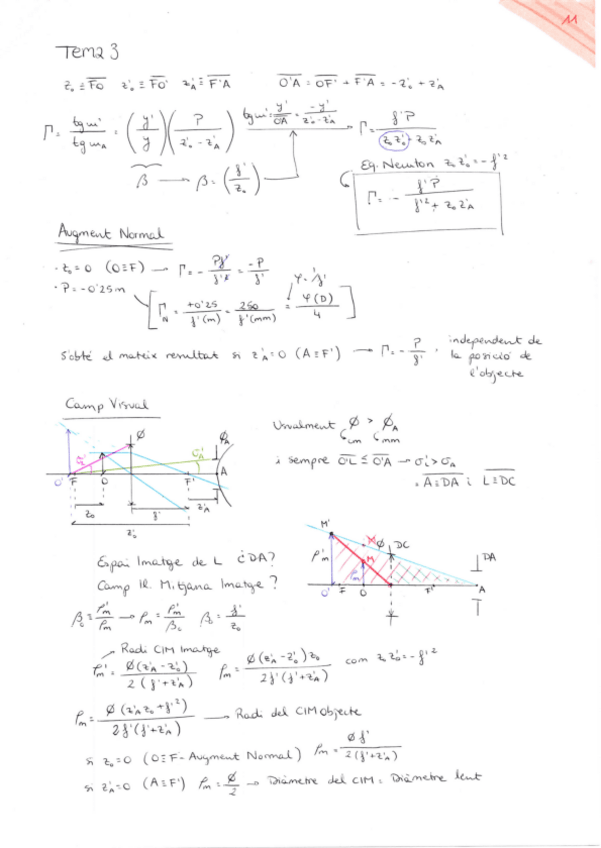 11
Tema 3
z₀ ≡ F̅O̅  z'₀ ≡ F̅'̅O̅'̅  z'_A ≡ F̅'̅A̅  O̅'̅A̅ = O̅'̅F̅'̅ + F̅'̅A̅ = -z'₀ + z'_A
Γ = tg w' / tg w_A = (y'/y) (P / (z'₀ - z'_A))  tg w' = y' / O̅'̅A̅ = -y' / (z'₀ - z'_A) → Γ = f'P / (z₀z'₀ - z₀z'_A)
β → β = (f'/z₀)
Eq. Newton z₀z'₀ = -f'²
Γ = - f'P / (f'² + z₀z'_A)
Augment Normal
· z₀ = 0 (O≡F) → Γ = - Pf' / f'² = -P / f'
· P = -0'25m
[Γ_N = +0'25 / f'(m) = 250 / f'(mm) = φ(D) / 4]
S'obté el mateix resultat si z'_A = 0 (A≡F') → Γ = - P / f' , independent de
la posició de
l'objecte
Camp Visual
Ø
Ø_A
O' F O F' A
z₀ f' z'_A
z'₀
Usualment Ø > Ø_A
cm mm
i sempre O̅L̅ ≤ O̅'̅A̅ → σ'_L > σ_A
· A≡DA i L≡DC
Espai Imatge de L i DA?
Camp Il. Mitjana Imatge?
M' M Ø DC DA
ρ'm ρm
O' F O F' A
β₀ = ρ'm / ρm → ρm = ρ'm / β₀  β₀ = f' / z₀
Radi CIM Imatge
ρ'm = Ø(z'_A - z'₀) / 2(f' + z'_A)  ρm = Ø(z'_A - z'₀)z₀ / 2f'(f' + z'_A)  com z₀z'₀ = -f'²
ρm = Ø(z'_A z₀ + f'²) / 2f'(f' + z'_A) → Radi del CIM Objecte
si z₀ = 0 (O≡F - Augment Normal) ρm = Øf' / 2(f' + z'_A)
si z'_A = 0 (A≡F') ρm = Ø / 2 → Diàmetre del CIM = Diàmetre lent